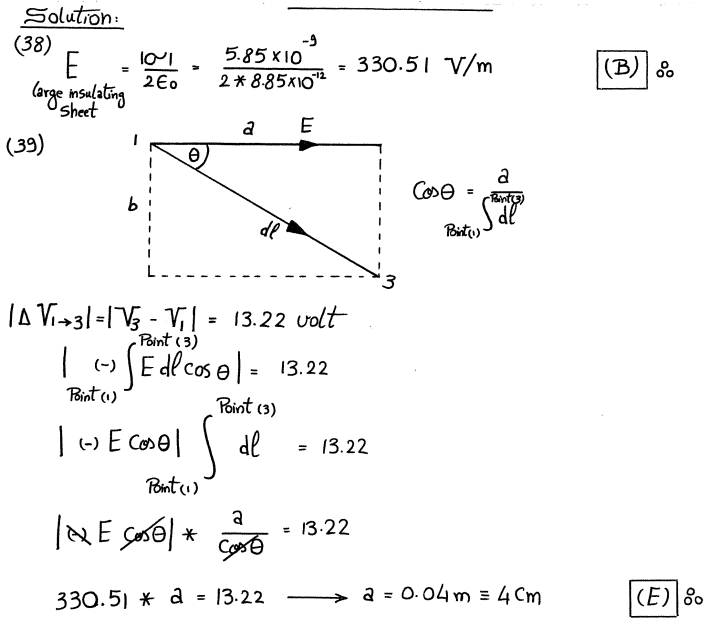 Solution:
(38) E large insulating sheet = |σ|/2ε₀ = 5.85×10⁻⁹/2*8.85×10⁻¹² = 330.51 V/m (B)
(39)
1 a E
θ
b
dl
3
Cosθ = a/∫Point(1)Point(3) dl
|ΔV₁→₃| = |V₃ - V₁| = 13.22 volt
| (-) ∫Point(1)Point(3) E dl cosθ | = 13.22
| (-) E Cosθ | ∫Point(1)Point(3) dl = 13.22
| (-) E Cosθ | * a/Cosθ = 13.22
330.51 * a = 13.22 ⟶ a = 0.04m ≡ 4Cm (E)